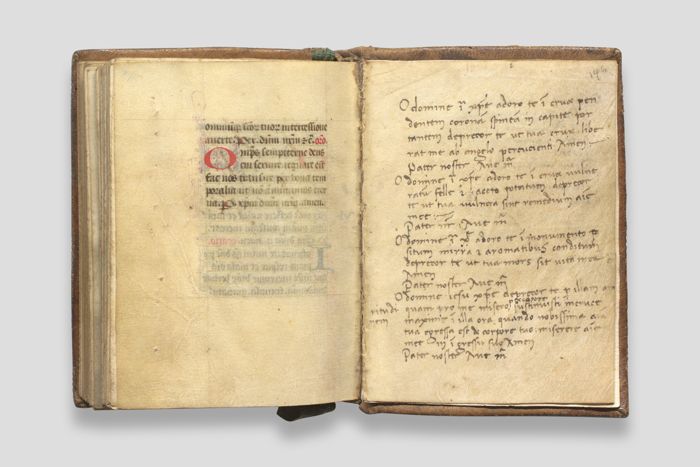 omnium scor tuor intercessione
averte. Per dnm nrm &c. oro
Omps sempiterne deus
fac nos
poralia ut non amittamus eter
na. P xpm dnm nrm amen.
146
O domine iu xpe adoro te i cruce pen
dentem corona spinea in capite por
tantem deprecor te ut tua crux libe
rat me ab angelo percucient Amen
Pater noster Ave m
O domine iu xpe adoro te i cruce vulne
ratu felle & aceto potatum deprecor
te ut tua vulnera sint remedium aie
mee.
Pater nr Ave m
O domine iu xpe adoro te i monumento po
situm mirra & aromatibus conditum
deprecor te ut tua mors sit vita mea
Amen
Pater noster Ave m
O domine iesu xpe deprecor te p illam ama
ritudinem
quam pro me misero sustinuisti i cruce
maxime i illa ora quando nobilissima aia
tua egressa est de corpore tuo miserere aie
mee in i egressu suo Amen
Pater noster Ave m